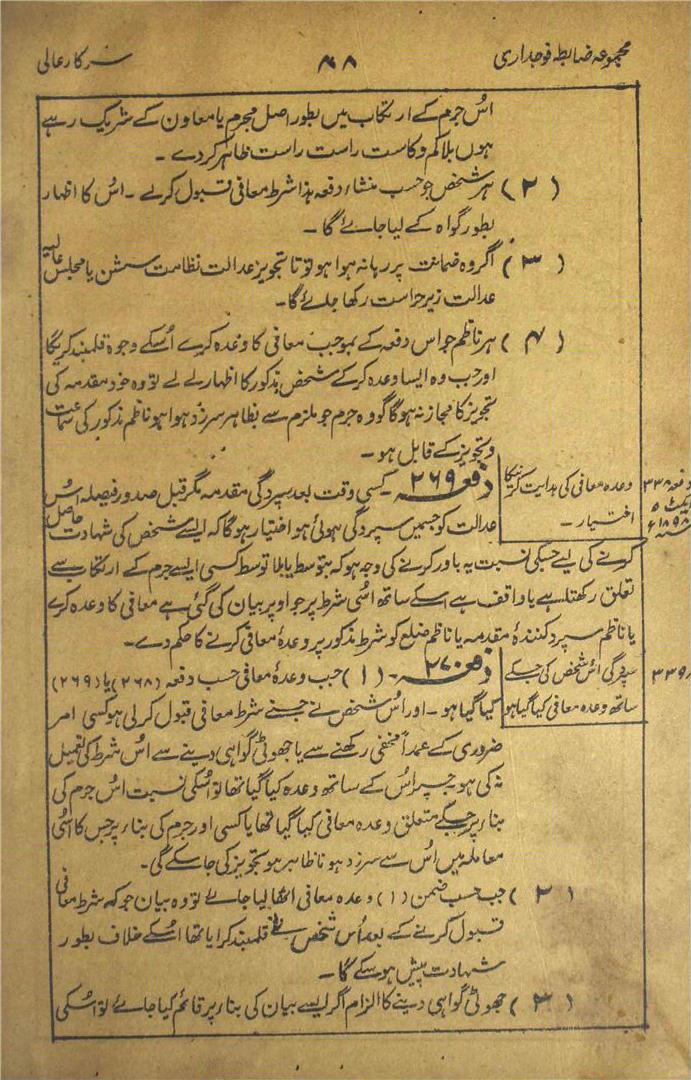 مجموعہ ضابطہ فوجداری
۶۸
سرکار عالی
اُس جرم کے ارتکاب میں بطور اصل مجرم یا معاون کے شریک رہے
ہوں بلا کم و کاست راست راست ظاہر کردے ۔
(۲) ہر شخص جو حسب منشاء دفعہ ہذا شرط معافی قبول کرلے ۔ اُس کا اظہار
بطور گواہ کے لیا جائے گا ۔
(۳) اگر وہ ضمانت پر رہا نہ ہوا ہو تو تا تجویز عدالت نظامت سشن یا مجلس عالیہ
عدالت زیر حراست رکھا جائے گا ۔
(۴) ہر ناظم جو اس دفعہ کے بموجب معافی کا وعدہ کرے اُسکے وجوہ قلمبند کریگا
اور جب وہ ایسا وعدہ کرکے شخص مذکور کا اظہار لے لے تو وہ خود مقدمہ کی
تجویز کا مجاز نہ ہوگا گو وہ جرم جو ملزم سے بظاہر سرزد ہوا ہو ناظم مذکور کی سماعت
و تجویز کے قابل ہو ۔
دفعہ ۳۳۸
ایکٹ ۵
۱۸۹۸ء
وعدہ معافی کی ہدایت کرنیکا
اختیار ۔
دفعہ ۲۶۹ ۔ کسی وقت بعد سپردگی مقدمہ مگر قبل صدور فیصلہ اُس
عدالت کو جسمیں سپردگی ہوئی ہو اختیار ہوگا کہ ایسے شخص کی شہادت حاصل
کرنے کی لیے جسکی نسبت یہ باور کرنے کی وجہ ہو کہ بتوسط یا بلا توسط کسی ایسے جرم کے ارتکاب سے
تعلق رکھتا ہے یا واقف ہے اسکے ساتھ اُسی شرط پر جو اوپر بیان کی گئی ہے معافی کا وعدہ کرے
یا ناظم سپرد کنندۂ مقدمہ یا ناظم ضلع کو شرط مذکور پر وعدۂ معافی کرنے کا حکم دے ۔
۳۳۹
سپردگی اُس شخص کی جسکے
ساتھ وعدہ معافی کیا گیا ہو
دفعہ ۲۷۰ ۔ (۱) جب وعدۂ معافی حسب دفعہ (۲۶۸) یا (۲۶۹)
کیا گیا ہو ۔ اور اُس شخص نے جسنے شرط معافی قبول کرلی ہو کسی امر
ضروری کے عمداً مخفی رکھنے سے یا جھوٹی گواہی دینے سے اُس شرط کی تعمیل
نہ کی ہو جسپر اُس کے ساتھ وعدہ کیا گیا تھا تو اُسکی نسبت اُس جرم کی
بناء پر جسکے متعلق وعدہ معافی کیا گیا تھا یا کسی اور جرم کی بناء پر جس کا اُسی
معاملہ میں اُس سے سرزد ہونا ظاہر ہو تجویز کی جا سکے گی ۔
(۲) جب حسب ضمن (۱) وعدہ معافی اٹھا لیا جائے تو وہ بیان جو کہ شرط معافی
قبول کرنے کے بعد اُس شخص نے قلمبند کرایا تھا اُسکے خلاف بطور
شہادت پیش ہو سکے گا ۔
(۳) جھوٹی گواہی دینے کا الزام اگر ایسے بیان کی بناء پر قائم کیا جائے تو اُسکی